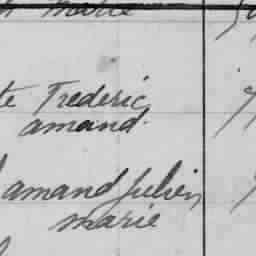 Marie
te Frederic
amand.
amand Julien
marie